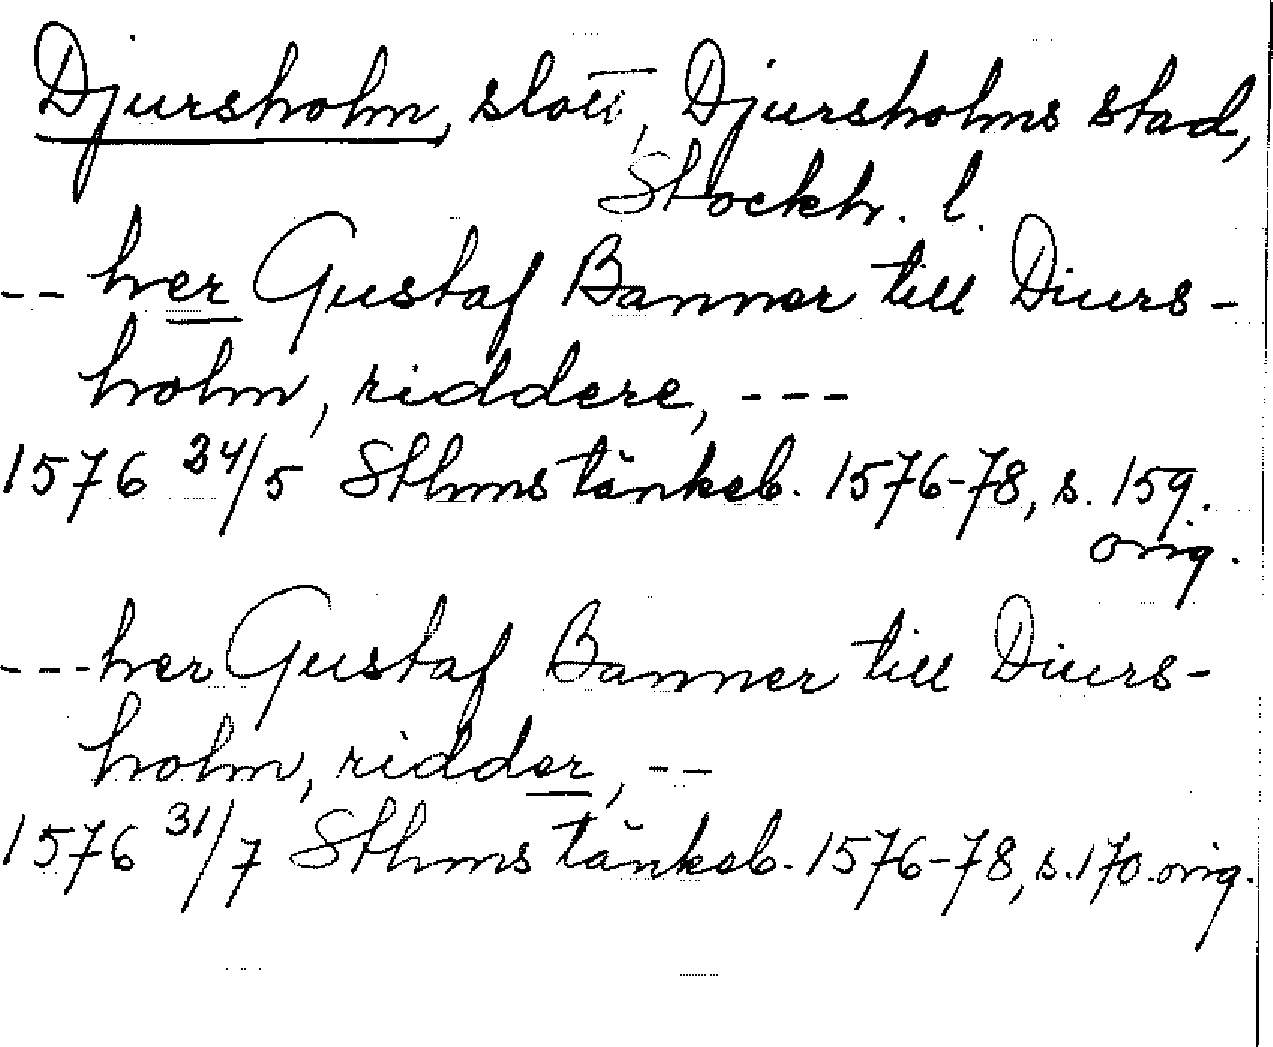 Djursholm, slott, Djursholms stad,
Stockh. l.
-- her Gustaf Banner till Diurs-
holm, riddere, ---
1576 24/5 Sthms tänkeb. 1576-78, s. 159.
orig.
--- her Gustaf Banner till Diurs-
holm, ridder, --
1576 31/7 Sthms tänkeb. 1576-78, s. 170. orig.